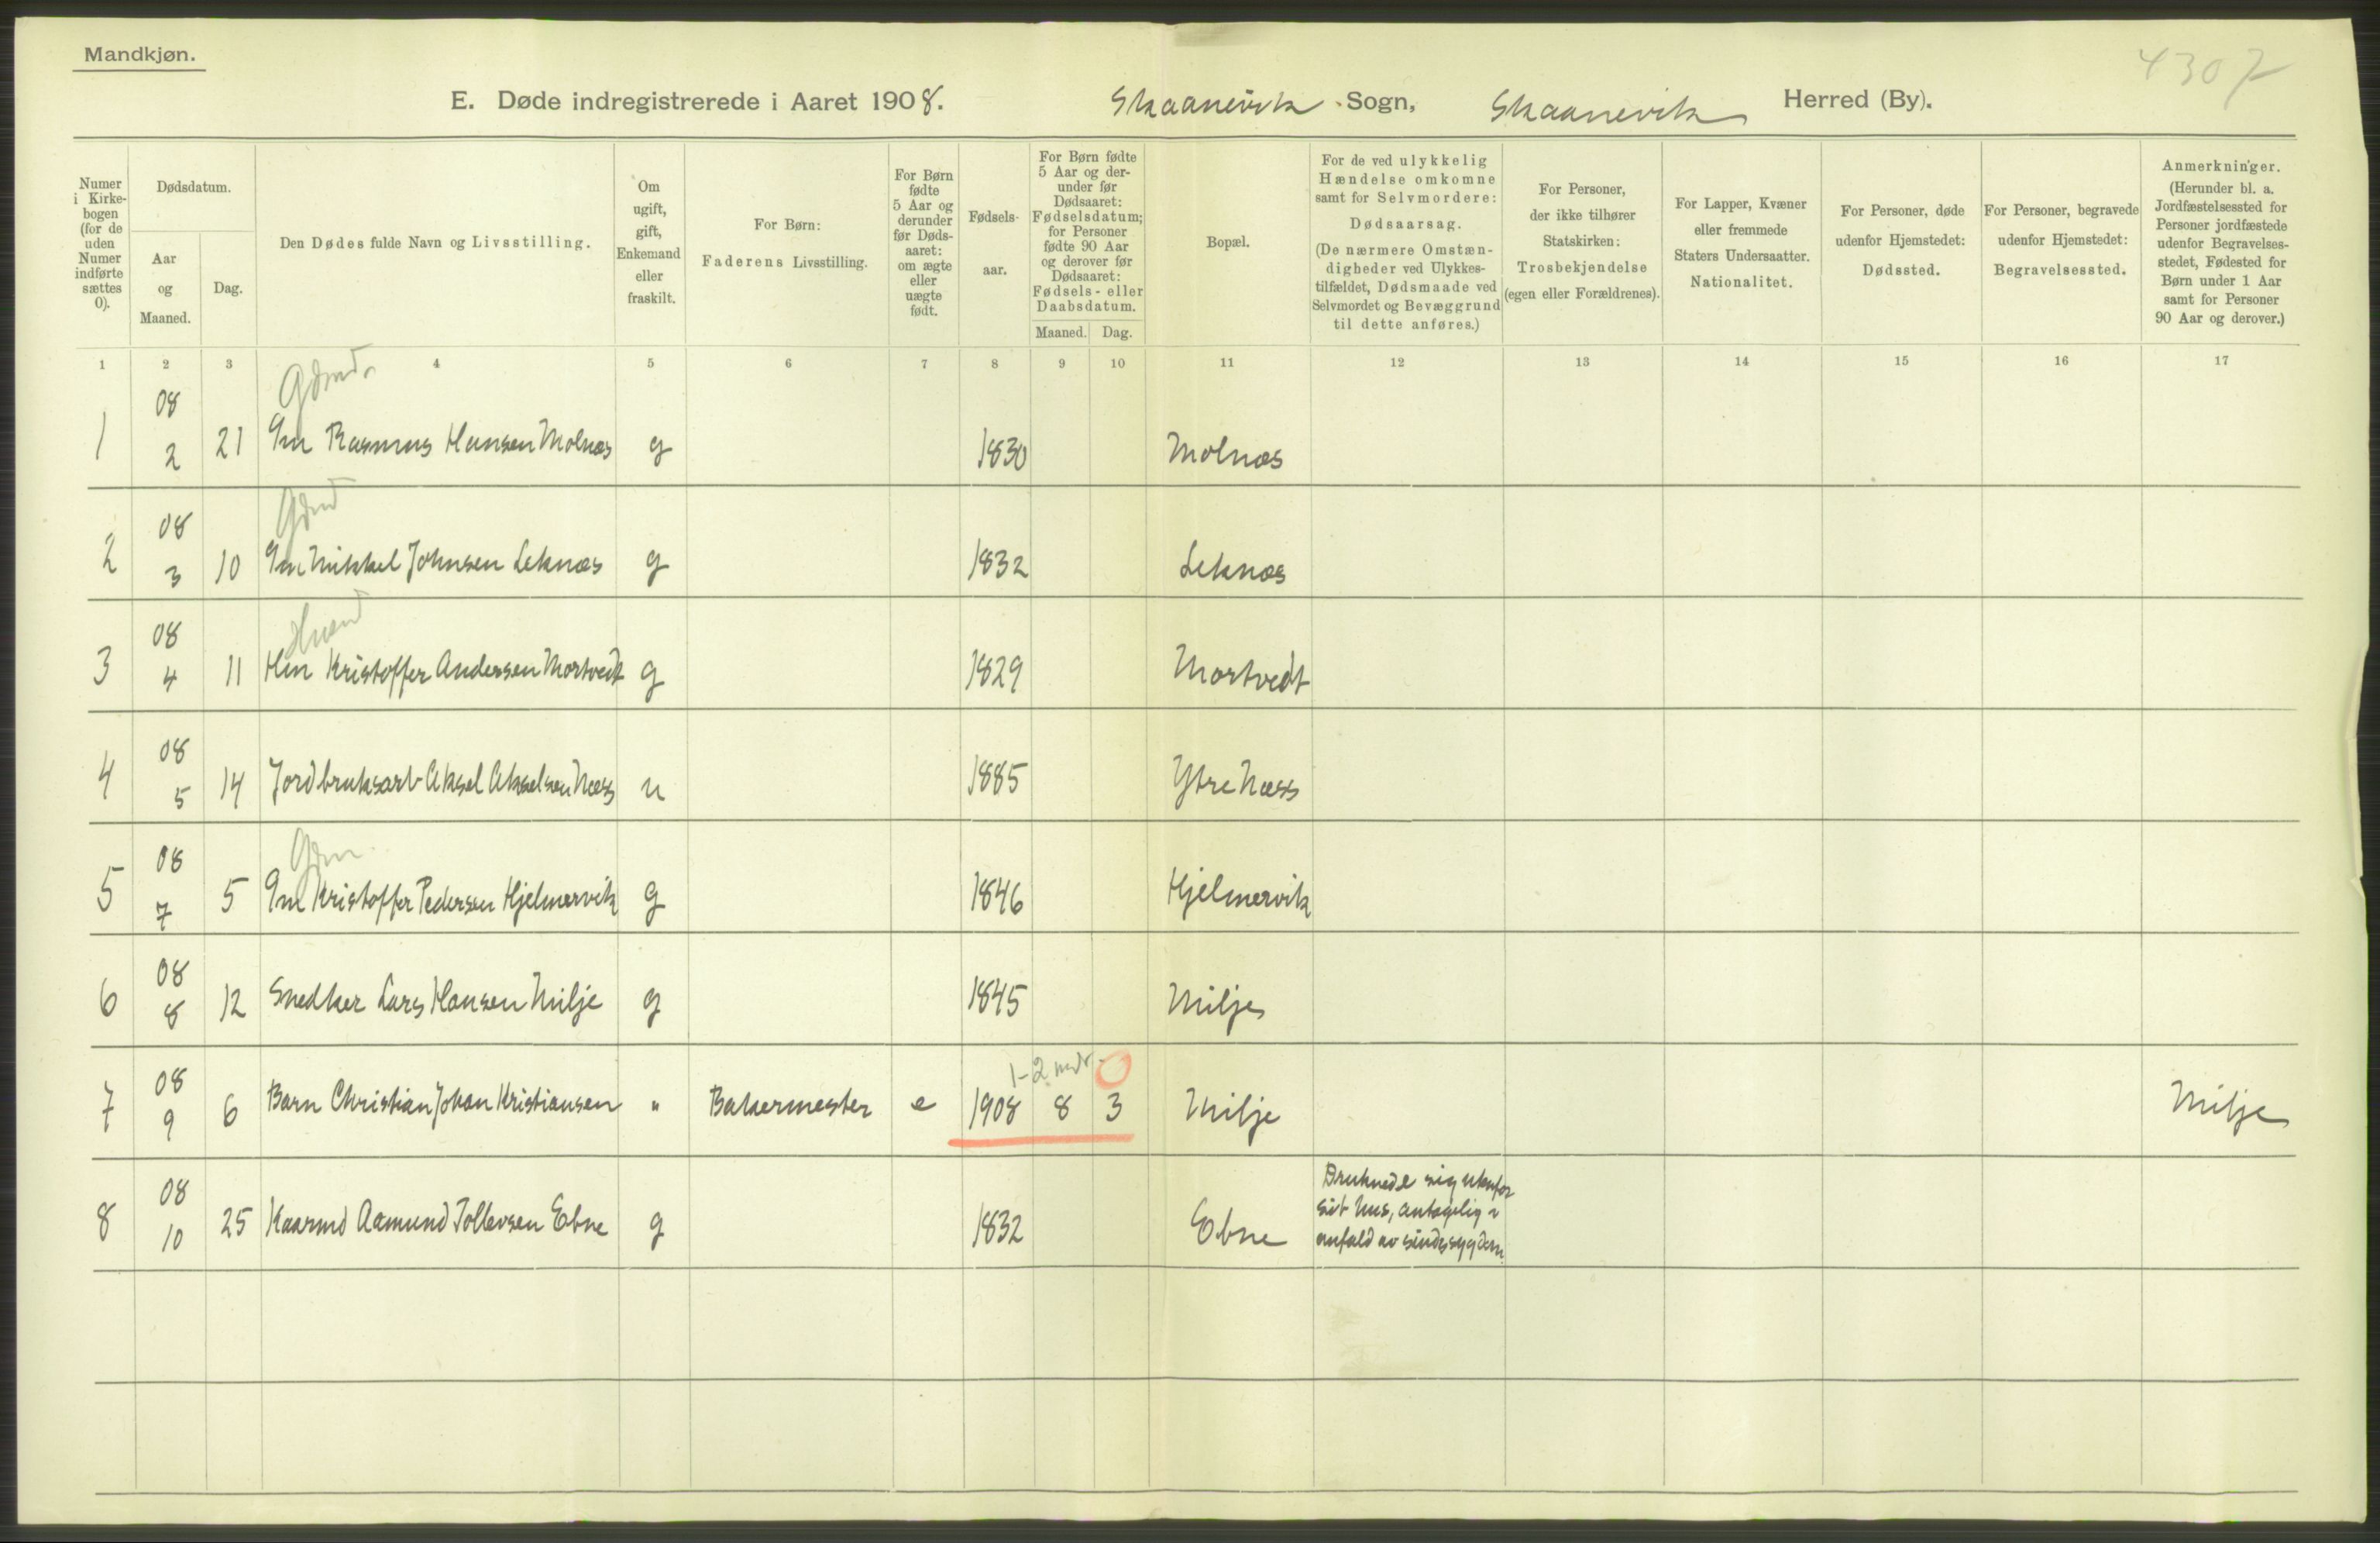 Mandkjøn.
4307
E. Døde indregistrerede i Aaret 1908. Skaanevik Sogn, Skaanevik Herred (By).
Numer i Kirkebogen (for de uden Numer indførte sættes 0).
Dødsdatum.
Aar og Maaned.
Dag.
Den Dødes fulde Navn og Livsstilling.
Om ugift, gift, Enkemand eller fraskilt.
For Børn: Faderens Livsstilling.
For Børn fødte 5 Aar og derunder før Dødsaaret: om ægte eller uægte født.
Fødselsaar.
For Børn fødte 5 Aar og derunder før Dødsaaret: Fødselsdatum; for Personer fødte 90 Aar og derover før Dødsaaret: Fødsels- eller Daabsdatum.
Maaned. Dag.
Bopæl.
For de ved ulykkelig Hændelse omkomne samt for Selvmordere: Dødsaarsag. (De nærmere Omstændigheder ved Ulykkestilfældet, Dødsmaade ved Selvmordet og Bevæggrund til dette anføres.)
For Personer, der ikke tilhører Statskirken: Trosbekjendelse (egen eller Forældrenes).
For Lapper, Kvæner eller fremmede Staters Undersaatter. Nationalitet.
For Personer, døde udenfor Hjemstedet: Dødssted.
For Personer, begravede udenfor Hjemstedet: Begravelsessted.
Anmerkninger. (Herunder bl. a. Jordfæstelsessted for Personer jordfæstede udenfor Begravelsesstedet, Fødested for Børn under 1 Aar samt for Personer 90 Aar og derover.)
1 2 3 4 5 6 7 8 9 10 11 12 13 14 15 16 17
1 08 2 21 Gm Rasmus Hansen Molnæs g 1830 Molnæs
2 08 3 10 Gm Mikkel Johnsen Leknæs g 1832 Leknæs
3 08 4 11 Hm Kristoffer Andersen Mortvedt g 1829 Mortvedt
4 08 5 14 Jordbruksarb Aksel Akselsen Næss u 1885 Ytre Næss
5 08 7 5 Gm Kristoffer Pedersen Hjelmervik g 1846 Hjelmervik
6 08 8 12 Snedker Lars Hansen Milje g 1845 Milje
1-2 mdr. 0
7 08 9 6 Barn Christian Johan Kristiansen " Bakermester e 1908 8 3 Milje Milje
8 08 10 25 Kaarmd Aamund Tollevsen Ebne g 1832 Ebne
Druknede sig utenfor
sit hus, antagelig i
anfald av sindssygdom